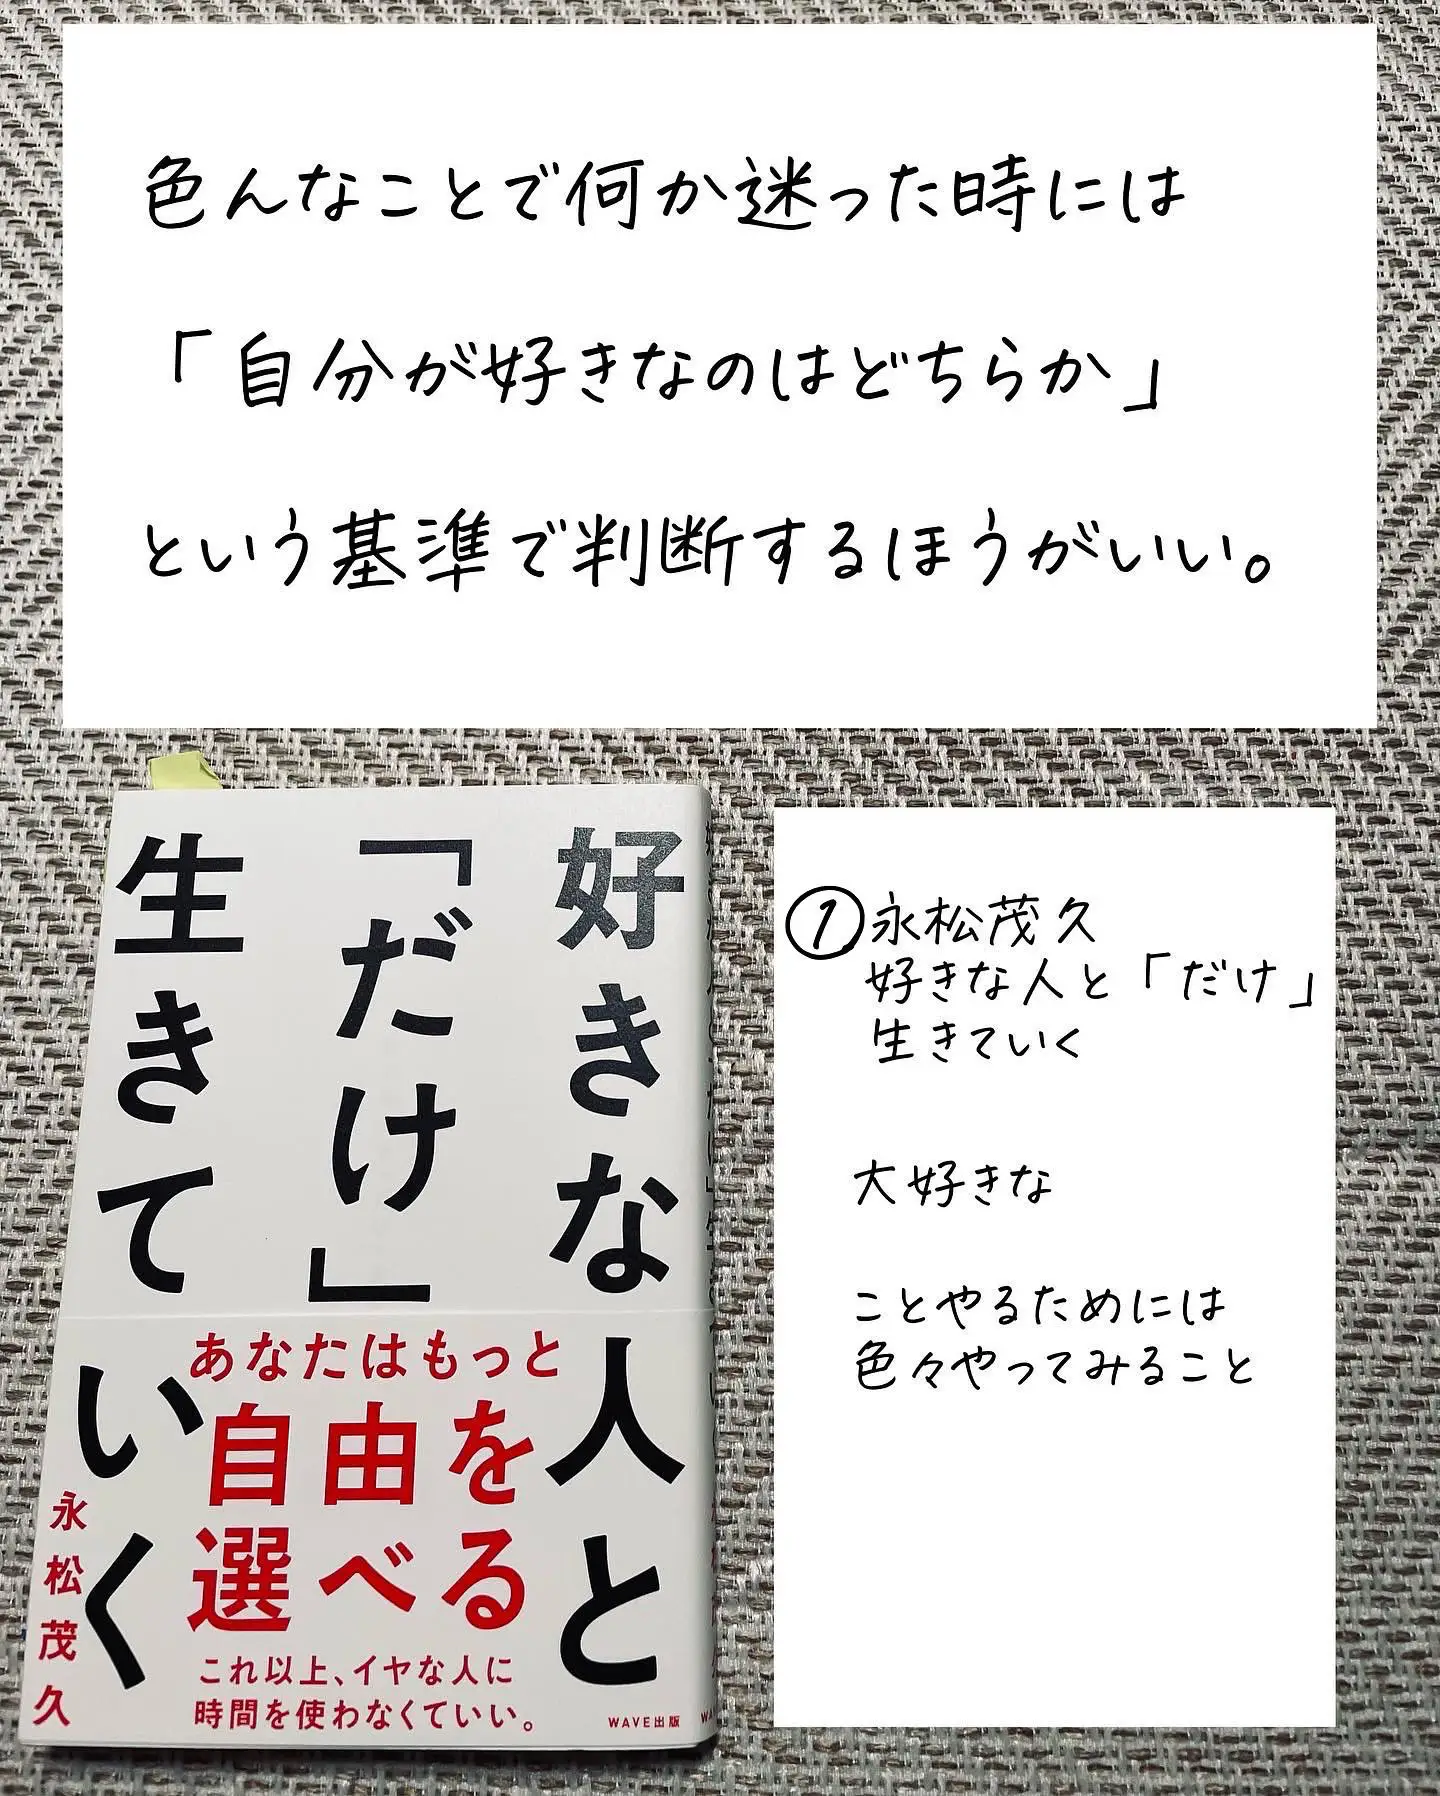 色んなことで何か迷った時には
「自分が好きなのはどちらか」
という基準で判断するほうがいい。
好きな人と
「だけ」
生きていく
永松茂久
あなたはもっと
自由を
選べる
これ以上、イヤな人に
時間を使わなくていい。
WAVE出版
①永松茂久
好きな人と「だけ」
生きていく
大好きな
ことやるためには
色々やってみること